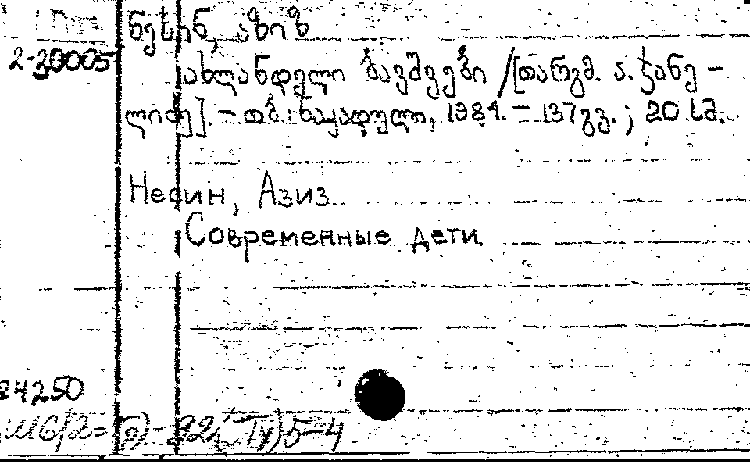 ნესინ, აზიზ
2-30005
ახლანდელი ბავშვები /[თარგმ. ა. ჭანე-
ლიძე]. - თბ.: ნაკადული, 1984. - 137 გვ. ; 20 სმ.
Несин, Азиз
Современные дети.
24250